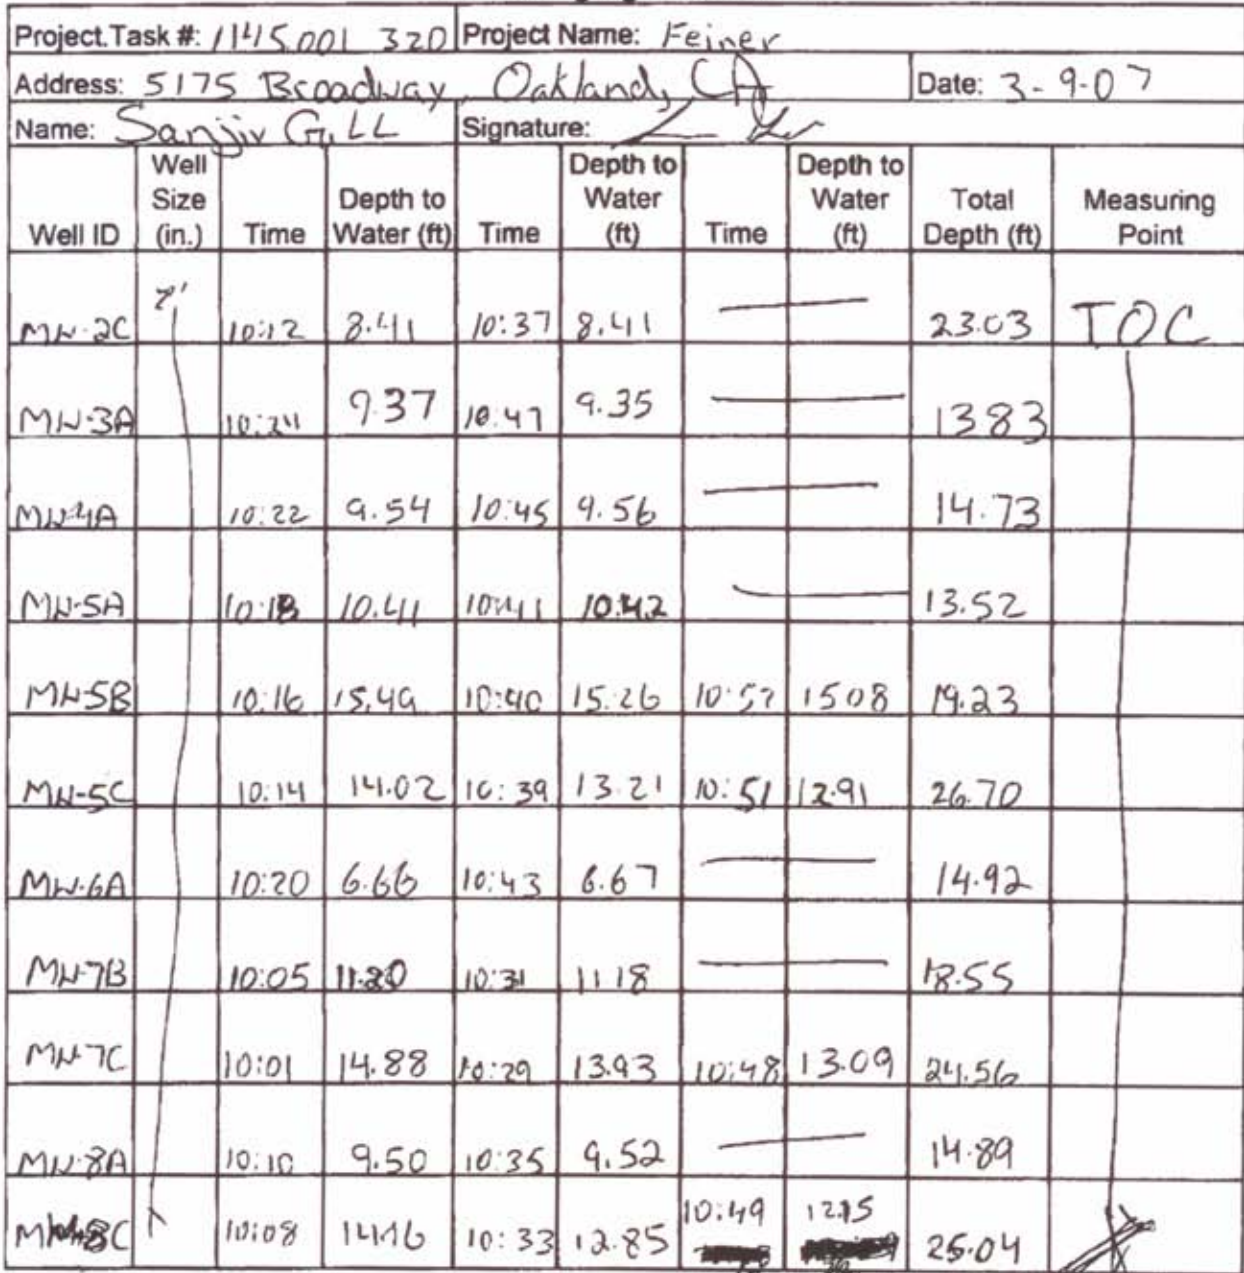 Project.Task #: 1145.001 320 Project Name: Feiner
Address: 5175 Broadway, Oakland, CA Date: 3-9-07
Name: Sanjiv Gill Signature:
Well ID Well Size (in.) Time Depth to Water (ft) Time Depth to Water (ft) Time Depth to Water (ft) Total Depth (ft) Measuring Point
MW-2C 2" 10:12 8.41 10:37 8.41 — 23.03 TOC
MW-3A 10:24 9.37 10:47 9.35 — 13.83
MW-4A 10:22 9.54 10:45 9.56 — 14.73
MW-5A 10:18 10.41 10:41 10.42 — 13.52
MW-5B 10:16 15.49 10:40 15.26 10:52 15.08 19.23
MW-5C 10:14 14.02 10:39 13.21 10:51 12.91 26.70
MW-6A 10:20 6.66 10:43 6.67 — 14.92
MW-7B 10:05 11.20 10:31 11.18 — 18.55
MW-7C 10:01 14.88 10:29 13.93 10:48 13.09 24.56
MW-8A 10:10 9.50 10:35 9.52 — 14.89
MW-8C 10:08 14.16 10:33 12.85 10:49 12.15 25.04